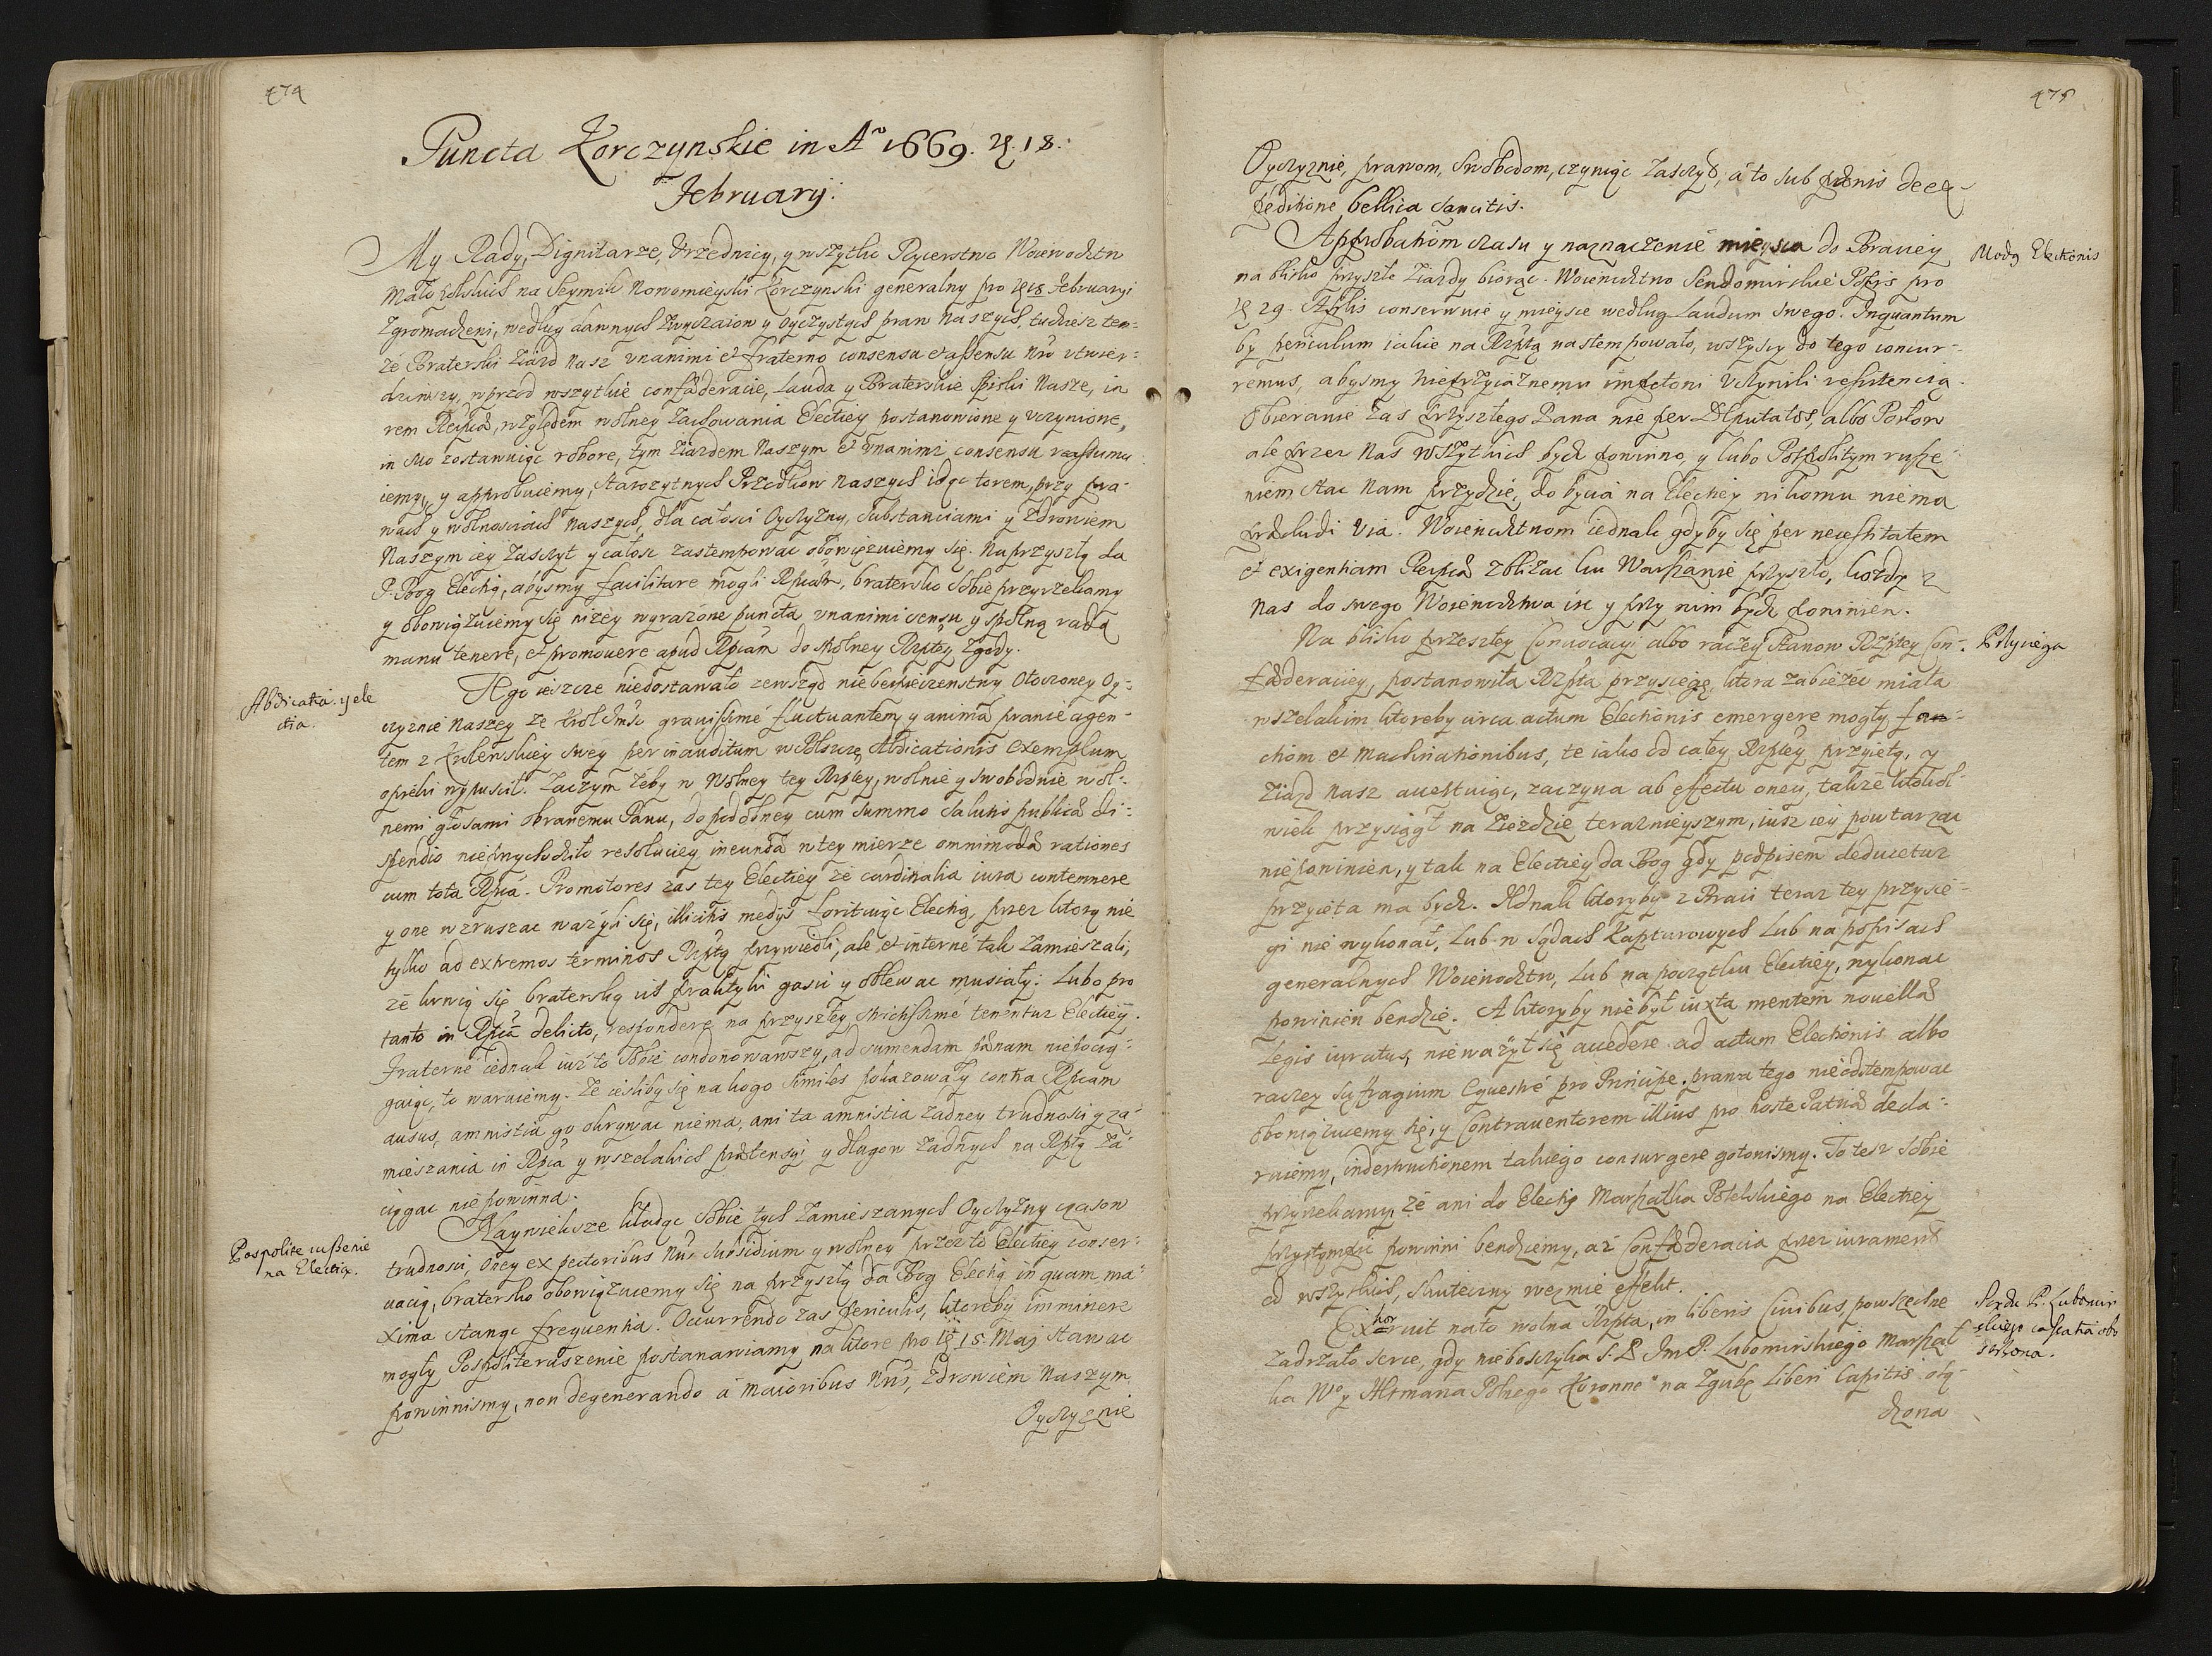 474
Puncta Korczynskie in Aº 1669. 18.
February.
My Rady, Dignitarze, Vrzednicy, y wszytko Rycerstwo Woiewodztw
Małopolskich na Seymik Nowomieyski Korczynski generalny pro 18 February
zgromadzeni, według dawnych zwyczaiow y oyczystych praw naszych, tudziesz ten=
że Braterski ziazd nasz vnanimi et fraterno consensu et assensu nro vtwier=
dziwszy, wprzod wszytkie confæderacie, lauda y Braterskie spiski nasze, ia
rem Reipcæ, względem wolney zachowania Electiey postanowione y vczynione,
in suo zostawuiąc robore, tym ziazdem naszym et vnanimi consensu reassumu
iemy, y approbuiemy, starozytnych Przodkow naszych idąc torem, przy pra=
wach y wolnosciach naszych, dla całosci Oyczyzny, substanciami y zdrowiem
naszym iey zaszczyt y całosc zastempowac obowięzuiemy się. Na przyszłą da
P. Bog Elechią, abysmy facilitare mogli Rpcam, bratersko sobie przyrzekamy
y obowiązuiemy się nizey wyrazone puncta vnanimi sensu y spolną radą
manu tenere, et promovere apud Rpcam do spolney Rzptey zgody.
Abdicatia y ele
ctia.
Tego ieszcze niedostawało zewsząd niebespieczenstwy otoczoney Oy=
czyznie naszey ze Krol Jmsc gravissimé fluctuantem, y anima pranie agen=
tem z Krolewskiey swey per inauditum w Polszcze Abdicationis exemplum
opieki wypuscił. Zaczym zeby w wolney tey Rzptey, wolnie y swobodnie wol=
nemi głosami obranemu Panu, do podobney cum summo salutis publicæ di=
spendio nieprzychodziło resoluciey, ineunda w tey mierze omnimodæ rationes
cum tota Rpca. Promotores zas tey Electiey ze cardinalia iura contemnere
y one wzruszac wazyli się, illicitis medys forituiąc Elechią, przez ktorą nie
tylko ad extremos terminos Rzptą przywiedli, ale et interné tak zamieszali,
ze krwią się braterską ich praktyki gasic y oblewac musiały: Lubo pro
tanto in Rpca delicto, respondere na przyszłey strictissimé tenentur Electiey.
Fraterne iednak iuz to sobie condonowawszy, ad sumendam pænam niepocią=
gaiąc, to waruiemy. Ze iesliby się na kogo similes pokazowały contra Rpcam
ausus, amnistia go okrywac niema, ani ta amnistia zadney trudnosci y za=
mieszania in Rpca y wszelakich prætensyi y długow zadnych na Rptą za=
ciągac niepowinna.
Pospolite ruszenie
na Electią.
Naywieksze kładąc sobie tych zamieszanych Oyczyzny czasow
trudnosci, Oney ex pectoribus nris subsidium y wolney przez to Electiey conser=
vacią, bratersko obowiązuiemy się na przyszłą da Bog Elechią in quam ma=
xima stanąc frequentia. Occurrendo zas periculis, ktoreby imminere
mogły Pospoliteruszenie postanawiamy na ktore pro 15. Maj stawac
powinnismy, non degenerando à maioribus nris, zdrowiem naszym
Oyczyznie
475
Oyczyznie, prawom, Swobodom, czyniąc zaszczyt, á to sub pænis de ex=
peditione bellica sancitis.
Modus Electionis
Approbatiom czasu y naznaczenié mieysca do Braciey
na blisko przyszłe ziazdy biorąc. Woiewodztwo Sendomirskie Popis pro
29. Aprilis conserwuie y mieysce według Laudum swego. Inquantum
by periculum iakie na Rzptą nastempowało, wszyscy do tego concur=
remus, abysmy nieprzyiaznemu imp̲etowi vczynili resistencią.
Obieranie zas przyszłego Pana nie per Deputatos, albo Posłow
ale przez nas wszytkich bydz powinno, y lubo Pospolitym rusze
niem stac nam przydzie, do bycia na Elechiey nikomu niema
præcludi via. Woiewodztwom iednak gdyby się per necessitatem
et exigentiam Reipcæ zblizac ku Warszawie przyszło, kozdy z
nas do swego Woiewodztwa isc y przy nim bydz powinien.
Przysięga
Na blisko przeszłey Convocacyi albo raczey stanow Rzptey Con=
fæderaciey, postanowiła Rzpta przysięgę, ktora zabiezec miała
wszelakim ktoreby circa actum Electionis emergere mogły fac=
tiom et machinationibus, te iako od całey Rzptey przyiętą, y
ziazd nasz acceptuiąc, zaczyna ab effectu oney, takze ktokol=
wiek przysiągł na ziezdzie terazniejszym, iusz iey powtarzac
niepowinien, y tak na Electiey da Bog gdy podpisem deducetur
przyięta ma bydz. Jednak ktoryby z Braci teraz tey przysię=
gi nie wykonał, Lub w sądach Kapturowych Lub na popisach
generalnych Woiewodztw, Lub na początku Electiey, wykonac
powinien bendzie. A ktoryby niebył iuxta mentem novellæ
Legis iuratus, niewazył się accedere ad actum Electionis albo
raczey suffragium equestré pro Principe. prawa tego nieodstempowac
obowiązuiemy się, y Contraventorem illius pro hoste Patriæ decla=
ruiemy, in destructionem takiego consurgere gotowismy. To tesz sobie
przyrzekamy, ze ani do Elechij Marszałka Poselskiego na Electiey
przystąmpic powinni bendziemy, az Confæderacia przez iurament
od wszytkich, skuteczny wezmie effekt.
Sądu P. Lubomir
skiego cassatia obo
strzona.
Exhorruit nato wolna Rzpta, in liberis Civibus, powszechne
zadrzało serce, gdy nieboszczyka S. P. Jm P. Lubomirskiego Marszał
ka Wº y Hetmana Polnego Koronneº na zgubę Liberi Capitis osą=
dzona